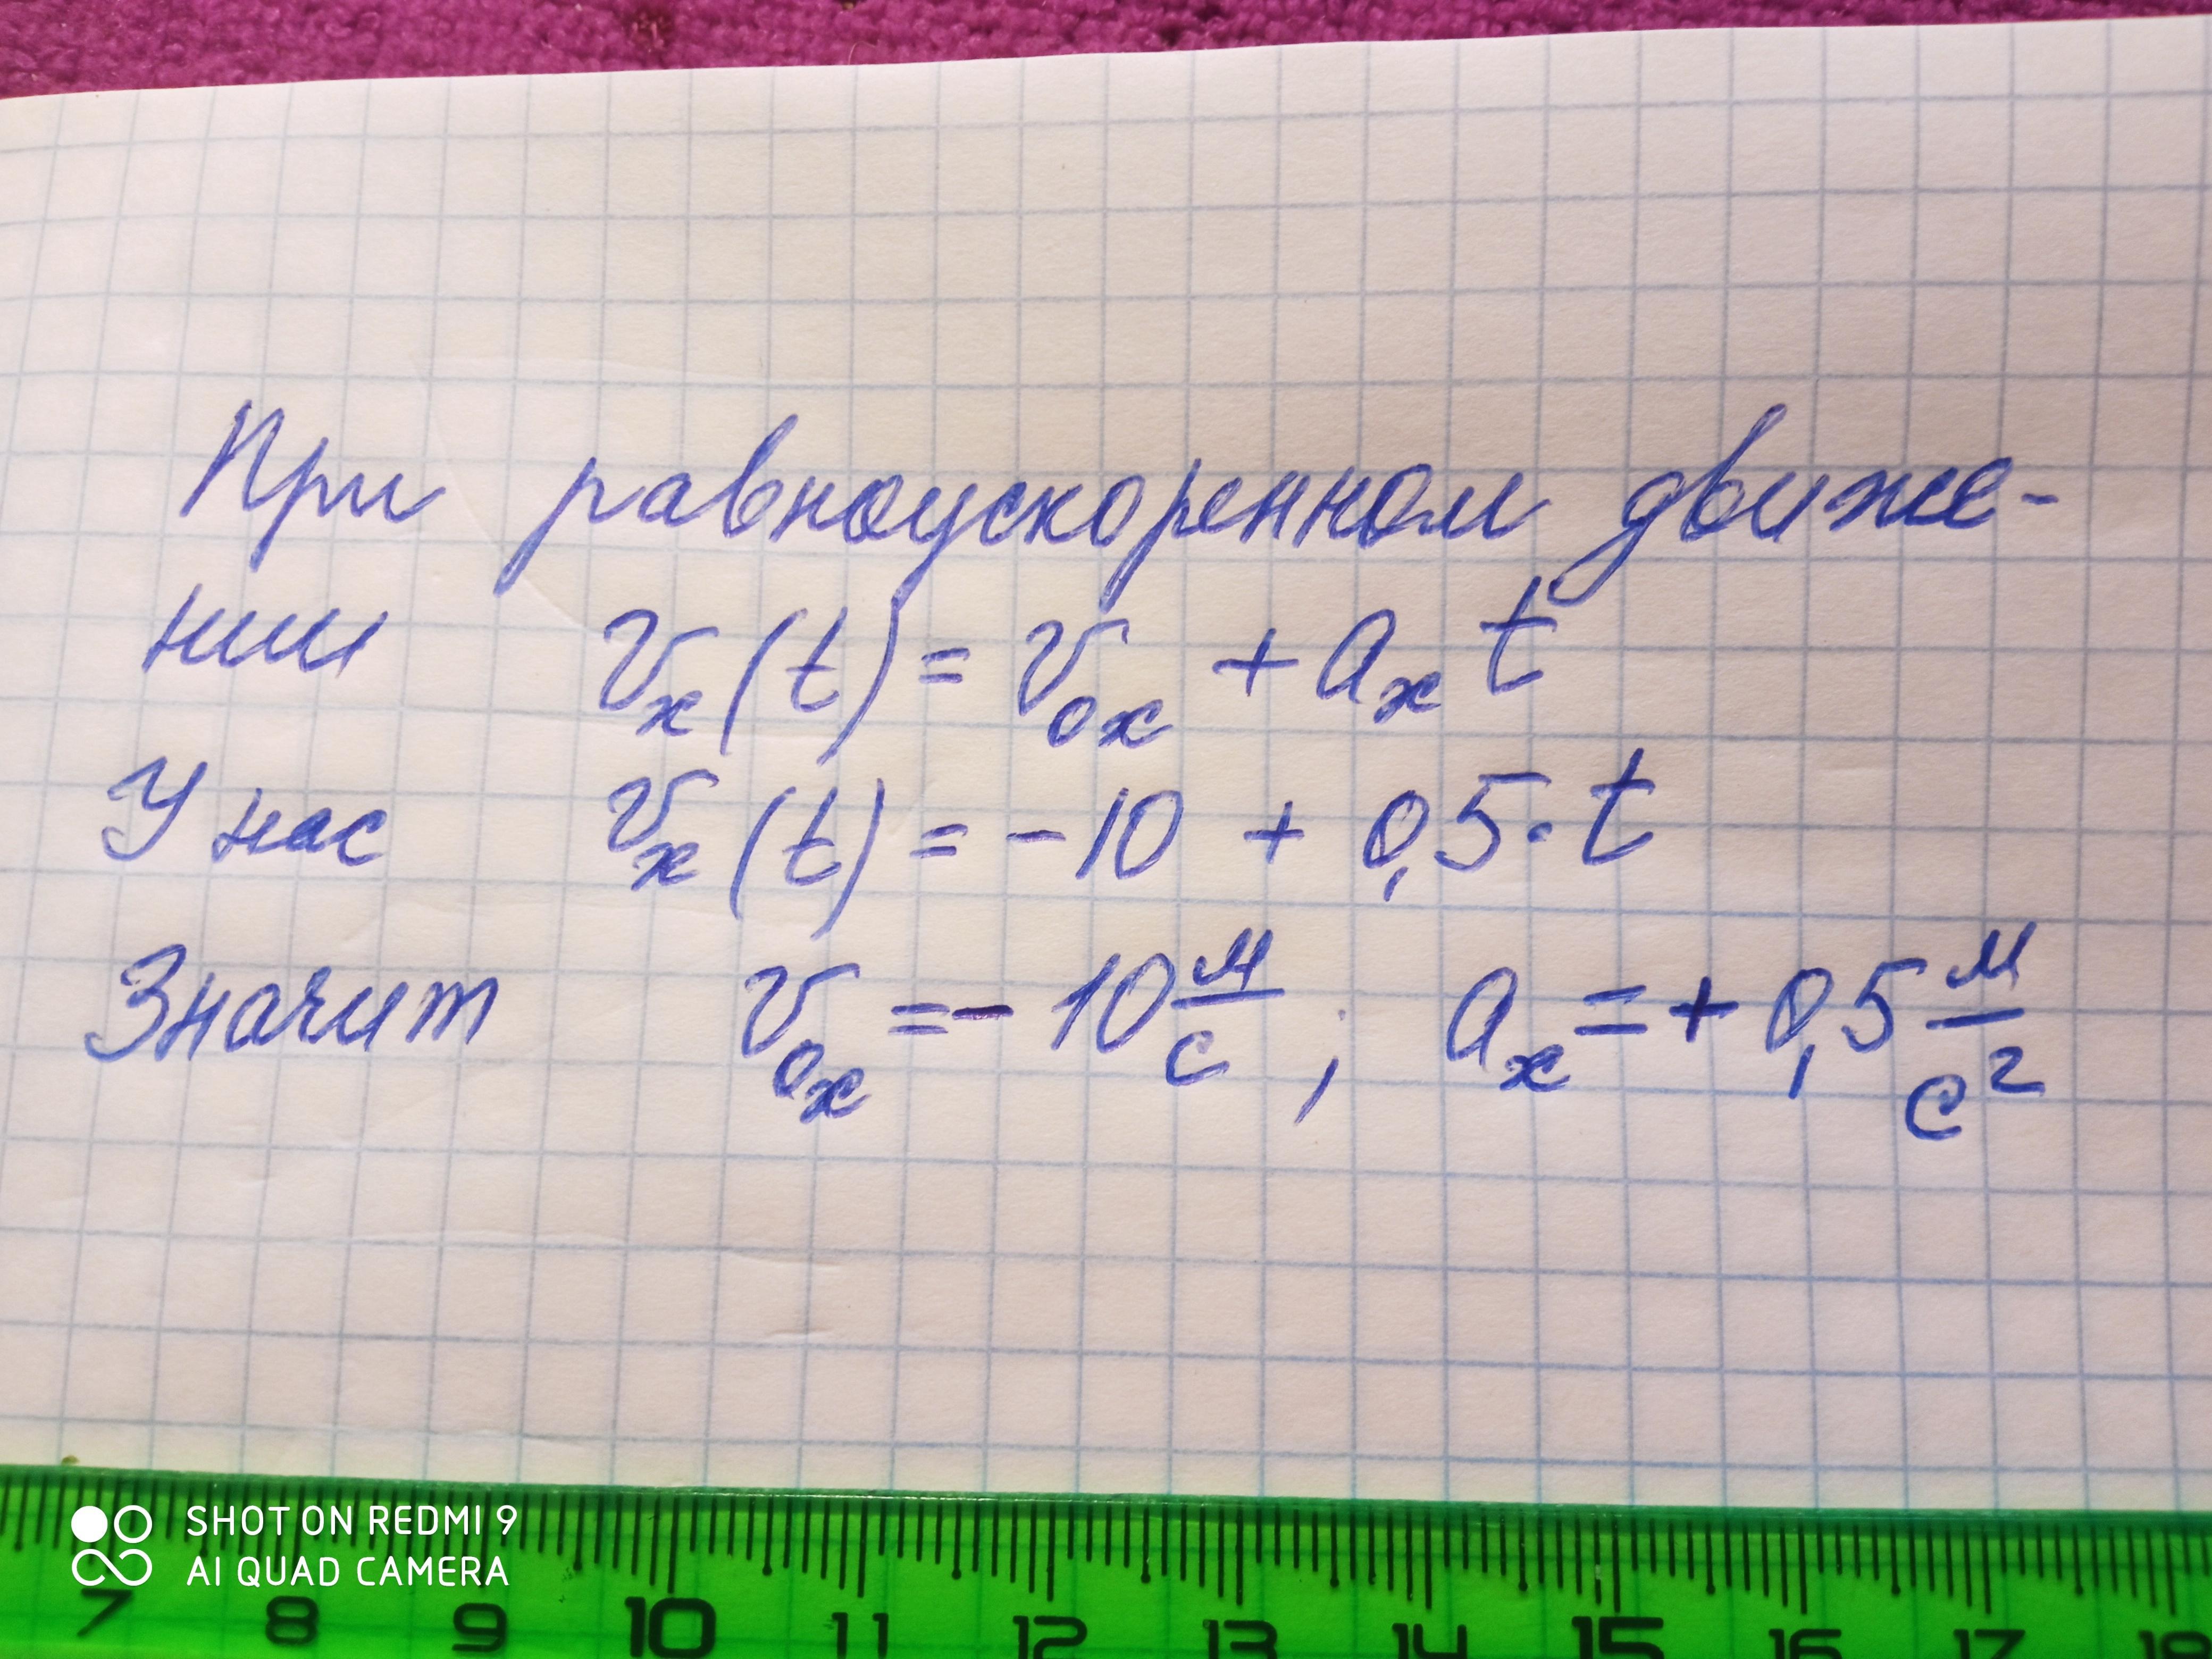 При равноускоренном движе-
нии vₓ(t) = v₀ₓ + aₓ t
У нас vₓ(t) = -10 + 0,5·t
Значит v₀ₓ = -10 м/с ; aₓ = +0,5 м/с²
SHOT ON REDMI 9
AI QUAD CAMERA
7 8 9 10 11 12 13 14 15 16 17 18